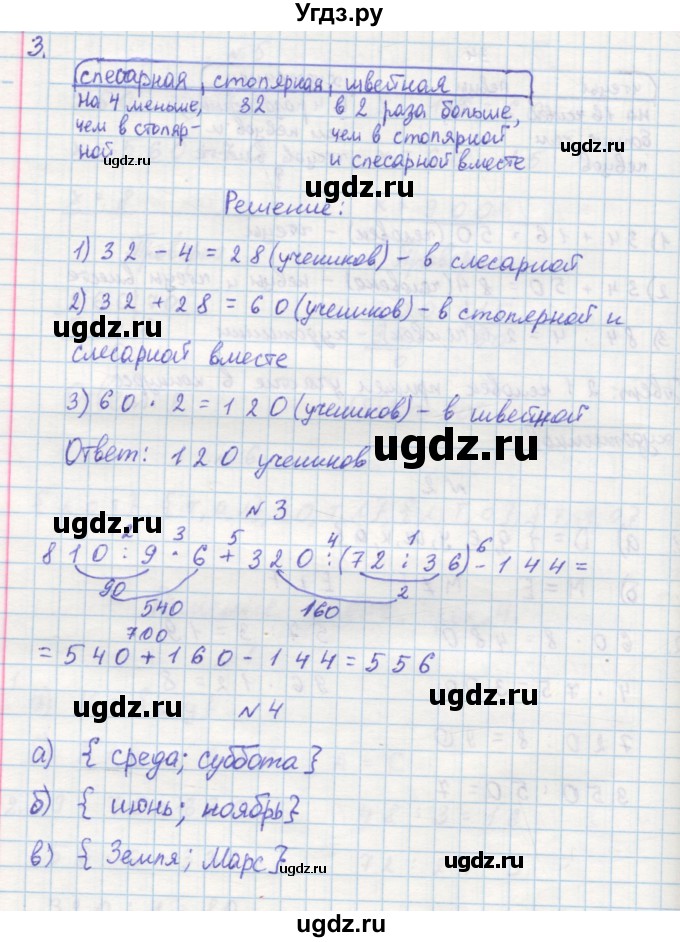 Угдз.ру
3.
слесарная, столярная, швейная
на 4 меньше, 32 в 2 раза больше,
чем в столяр- чем в столярной
ной и слесарной вместе
ugdz.ru ugdz.ru ugdz.ru
Решение:
1) 32 - 4 = 28 (учеников) - в слесарной
2) 32 + 28 = 60 (учеников) - в столярной и
ugdz.ru
слесарной вместе
3) 60 · 2 = 120 (учеников) - в швейной
Ответ: 120 учеников
ugdz.ru
№ 3
2 3 5 4 1 6
810 : 9 · 6 + 320 : (72 : 36) - 144 =
90 2
540 160
700
ugdz.ru ugdz.ru
= 540 + 160 - 144 = 556
ugdz.ru ugdz.ru
№ 4
а) { среда; суббота }
б) { июнь; ноябрь }
в) { Земля; Марс }
ugdz.ru ugdz.ru
ugdz.ru